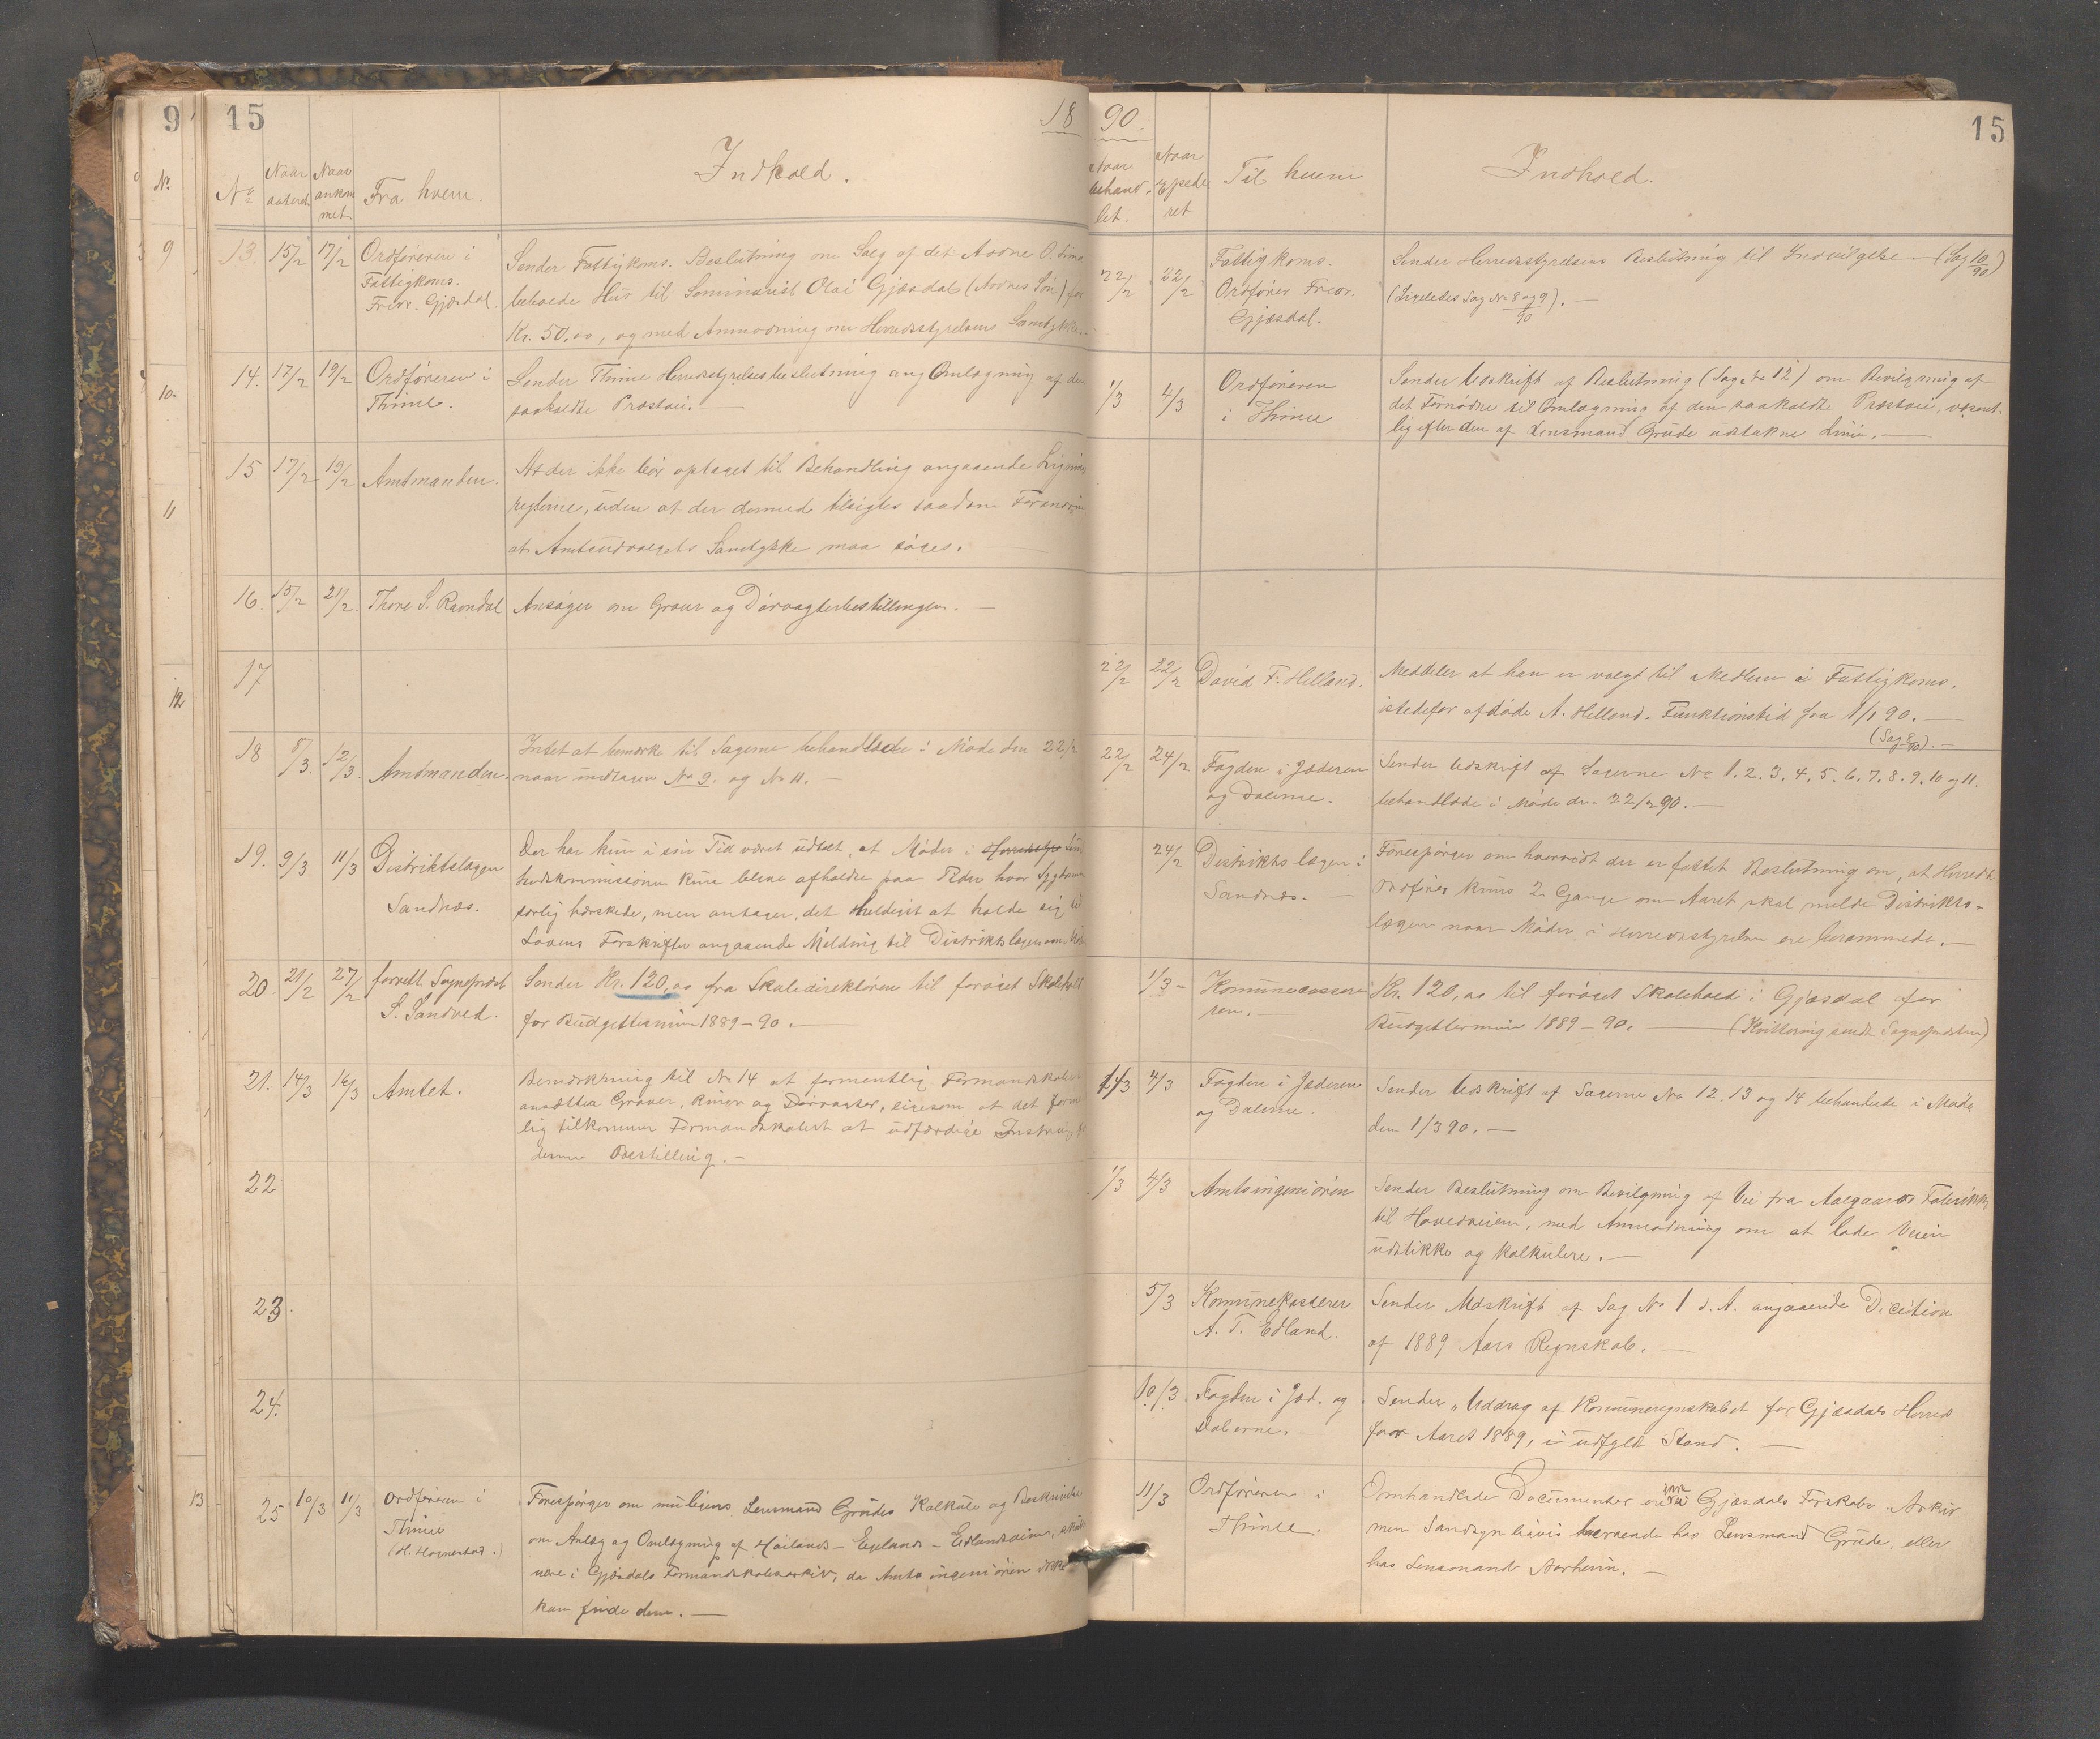 9
15
18
No
Naar
dateret
Naar
ankom
met
Fra hvem.
Indhold.
13.
15/2
17/2
Ordføreren i
Fattigkoms.
Fredr. Gjæsdal.
Sender Fattigkoms. Beslutning om Salg af det Aadne O. Lima
beboede Hus til Seminarist Olai Gjæsdal (Aadnes Søn) for
Kr. 50,00, og med Anmodning om Herredsstyrelsens Samtykke.
14.
17/2
19/2
Ordføreren i
Thime.
Sender Thime Herredsstyrelses beslutning ang Omlægning af den
saakaldte Præstvei.
15
17/2
19/2
Amtmanden.
At der ikke bør optaget til Behandling angaaende Lignings
reglerne, uden at der dermed tilsigtes saadan Forandring
at Amtsudvalgets Samtykke maa søges.
16.
15/2
21/2.
Thore S. Ravndal
Ansøger om Graver og Dørvogterbestillingen. —
17
18
8/3.
12/3.
Amtmanden.
Intet at bemærke til Sagerne behandlede i Møde den 22/2
naar undtagen No 9. og No 11. —
19.
9/3
11/3
Distriktslægen
Sandnæs.
Der har kun i sin Tid været udtalt, at Møder i Herredsstyr Sund
hedskommissionen kun blive afholdte paa Tider hvor Sygdomme
særlig herskede, men antager, det heldigst at holde sig til
Lovens Forskrifter angaaende Melding til Distriktslægen om Mød
20
21/2
27/2
forrett. Sognepræst
S. Sandved.
Sender Kr. 120,00 fra Skoledirektøren til forøget Skolehold
for Budgettermin 1889–90. —
21.
14/3
16/3
Amtet.
Bemærkning til No 14 at formentlig Formandskabet
ansætter Graver, Ringer og Dørvogter, ligesom at det forment
lig tilkommer Formandskabet at udfærdige Instruks for
denne Bestilling. —
22
23.
24.
25
10/3
11/3
Ordføreren i
Thime
(H. Hognestad.)
Forespørger om muligens Lensmand Grudes Kalkule og Beskrivelse
om Anlæg og Omlægning af Høilands – Egelands – Edlandsveien, skulde
være i Gjæsdals Formandskabsarkiv, da Amts ingeniøren ikke
kan finde dem. —
90.
15
Naar
behand-
let.
Naar
Expede
ret
Til hvem
Indhold.
22/2
22/2
Fattigkoms.
Ordfører Fredr.
Gjæsdal.
Sender Herredsstyrelsens Beslutning til Indvilgelse — (Sag 10/90)
(Ligeledes Sag No 8 og 9/90). —
1/3
4/3
Ordføreren
i Thime
Sender Udskrift af Beslutning (Sag No 12) om Bevilgning af
det Fornødne til Omlægning af den saakaldte Præstvei, væsent-
lig efter den af Lensmand Grude udstukne Linie. —
22/2
22/2
David T. Helland.
Meddeler at han er valgt til Medlem i Fattigkoms.
istedefor afdøde A. Helland. Funktionstid fra 1/1 90. —
(Sag 8/90). —
22/2
24/2
Fogden i Jæderen
og Dalerne.
Sender Udskrift af Sagerne No 1. 2. 3. 4. 5. 6. 7. 8. 9. 10 og 11.
behandlede i Møde den 22/2 90. —
24/2
Distrikts lægen i
Sandnæs. —
Forespørger om hvorvidt der er fattet Beslutning om, at Herreds
ordfører kuns 2 Gange om Aaret skal melde Distrikts-
lægen naar Møder i Herredsstyrelsen ere berammede. —
1/3 –
Kommunecassere
ren. —
Kr. 120,00 til forøget Skolehold i Gjæsdal for
Budgettermin 1889–90. — (Kvittering sendt Sognepræsten)
1/3
4/3
Fogden i Jæderen
og Dalerne.
Sender Udskrift af Sagerne No 12. 13 og 14 behandlede i Møde
den 1/3 90. —
1/3
4/3
Amtsingeniøren
Sender Beslutning om Bevilgning af Vei fra Aalgaards Fabrikker
til Hovedveien, med Anmodning om at lade Veien
udstikke og kalkulere. —
5/3
Kommunekasserer
A. T. Edland.
Sender Udskrift af Sag No 1 d. A. angaaende Dicision
af 1889 Aars Regnskab. —
10/3.
Fogden i Jæd. og
Dalerne. —
Sender „Uddrag af Kommuneregnskabet for Gjæsdals Herred
for Aaret 1889, i udfyldt Stand. —
11/3
Ordføreren i
Thime.
Omhandlede Documenter er ikke i Gjæsdals Forskabs Arkiv
men Sandsynligvis beroende hos Lensmand Grude, eller
hos Lensmand Aarheim. —
No.
9
10.
11
12
13